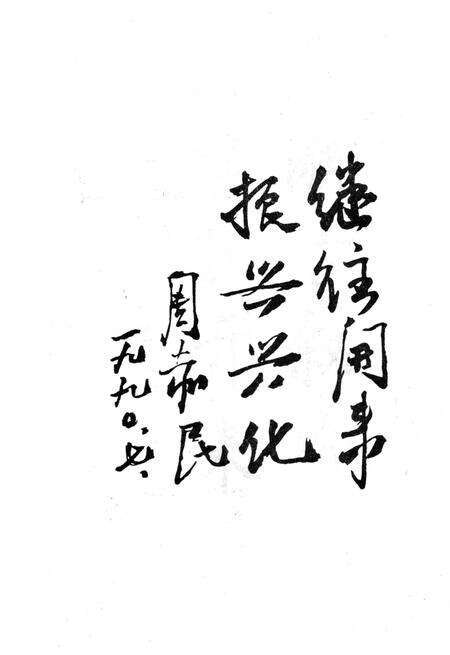 继往开来
振兴兴化
周赤民
一九九〇.七.